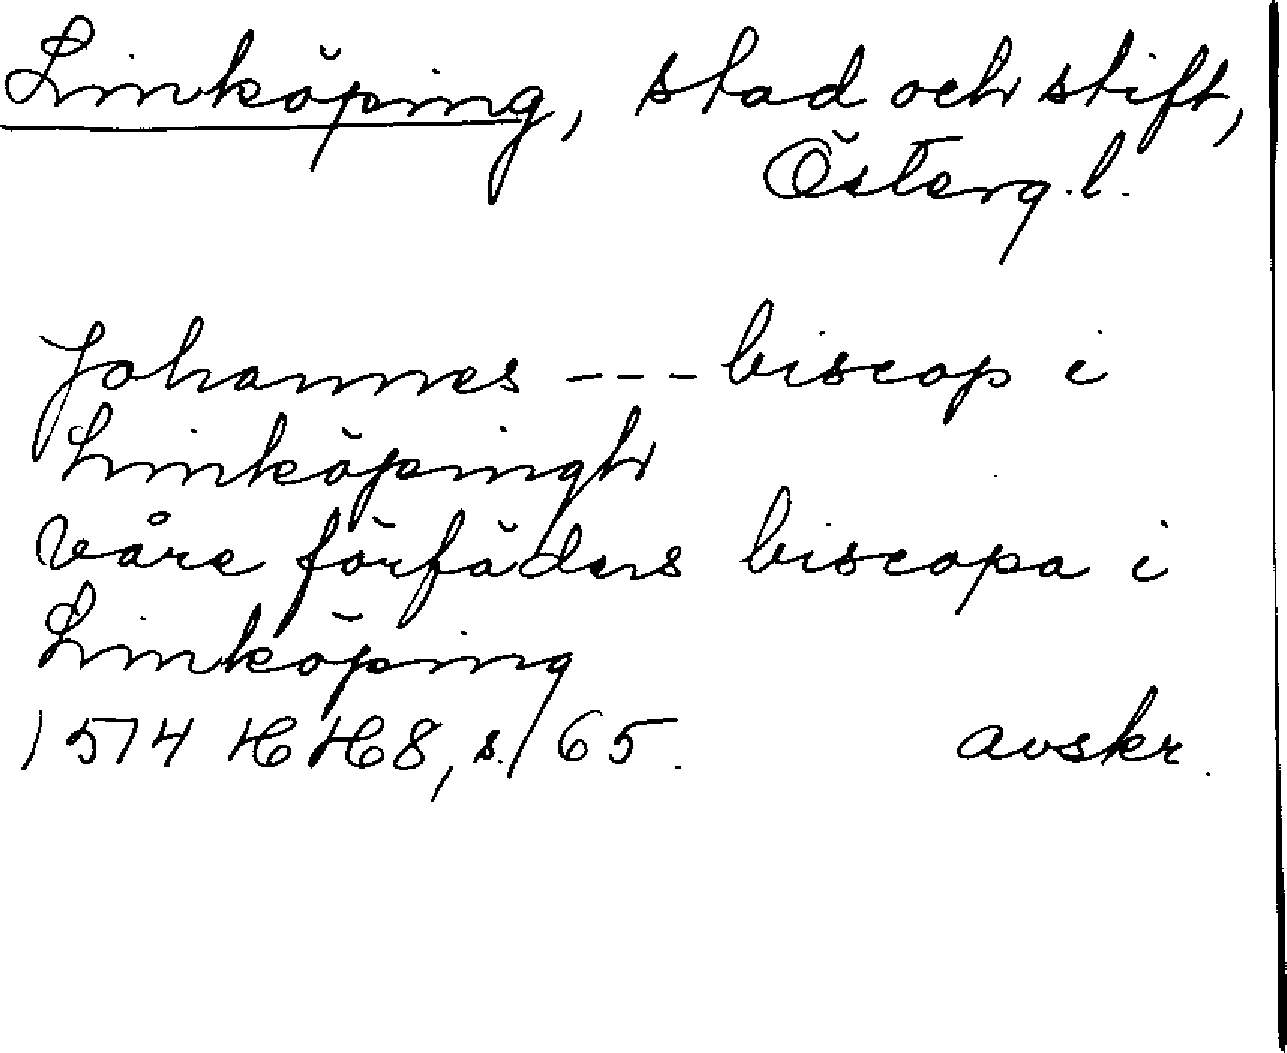 Linköping, stad och stift,
Österg.l.
Johannes --- biscop i
Linköpingh
Våre förfäders biscopa i
Linköping
1574 HH8, s. 65. avskr.